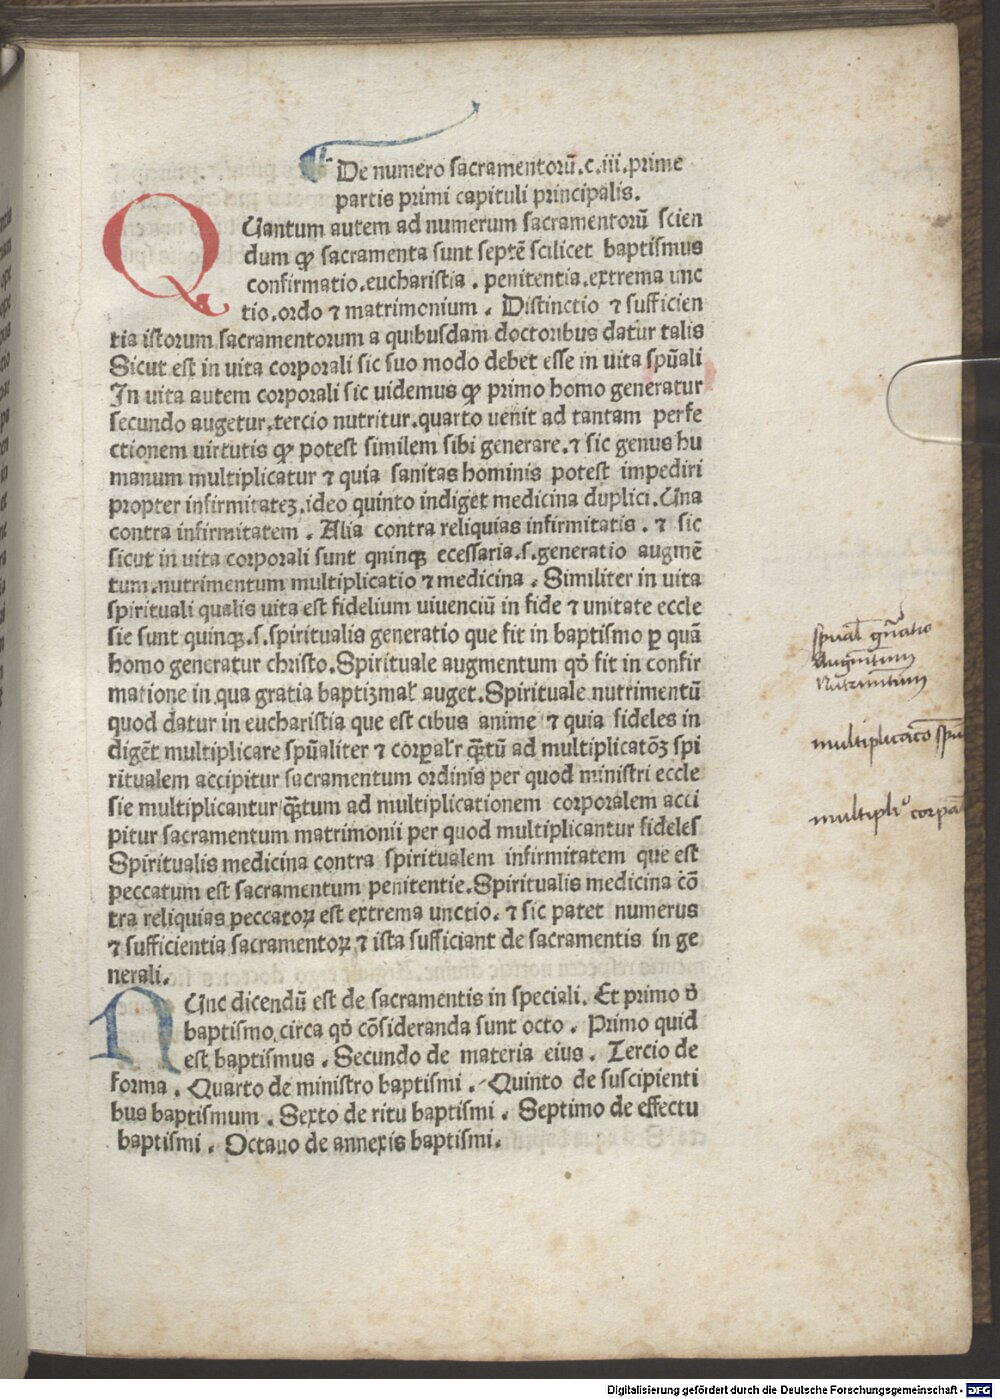 De numero sacramentorū.c.iii.prime
partis primi capituli principalis.
QUantum autem ad numerum sacramentorū scien
dum ꝙ sacramenta sunt septē scilicet baptismus
confirmatio.eucharistia. penitentia.extrema unc
tio.ordo ⁊ matrimonium. Distinctio ⁊ sufficien
tia istorum sacramentorum a quibusdam doctoribus datur talis
Sicut est in uita corporali sic suo modo debet esse in uita spūali
In uita autem corporali sic uidemus ꝙ primo homo generatur
secundo augetur.tercio nutritur.quarto uenit ad tantam perfe
ctionem uirtutis ꝙ potest similem sibi generare.⁊ sic genus hu
manum multiplicatur ⁊ quia sanitas hominis potest impediri
propter infirmitateꝫ.ideo quinto indiget medicina duplici.Una
contra infirmitatem. Alia contra reliquias infirmitatis. ⁊ sic
sicut in uita corporali sunt qninqꝫ ecessaria.s.generatio augmē
tum.nutrimentum multiplicatio ⁊ medicina. Similiter in uita
spirituali qualis uita est fidelium uiuenciū in fide ⁊ unitate eccle
sie sunt quinqꝫ.s.spiritualis generatio que fit in baptismo ꝑ quā
homo generatur christo.Spirituale augmentum qđ fit in confir
matione in qua gratia baptiʒmał auget.Spirituale nutrimentū
quod datur in eucharistia que est cibus anime ⁊ quia fideles in
digēt multiplicare spūaliter ⁊ corpałr q̄tū ad multiplicatōꝫ spi
ritualem accipitur sacramentum ordinis per quod ministri eccle
sie multiplicantur/q̄tum ad multiplicationem corporalem acci
pitur sacramentum matrimonii per quod multiplicantur fideles
Spiritualis medicina contra spiritualem infirmitatem que est
peccatum est sacramentum penitentie.Spiritualis medicina cō
tra reliquias peccatoꝝ est extrema unctio. ⁊ sic patet numerus
⁊ sufficientia sacramentoꝝ ⁊ ista sufficiant de sacramentis in ge
nerali.
NUnc dicendū est de sacramentis in speciali. Et primo đ
baptismo.circa qđ cōsideranda sunt octo. Primo quid
est baptismus. Secundo de materia eius. Tercio de
forma. Quarto de ministro baptismi. Quinto de suscipienti
bus baptismum. Sexto de ritu baptismi. Septimo de effectu
baptismi. Octauo de annexis baptismi.
spūal gn̄atio
Augmētum
Nutrimētum
multiplicacō spū
multipl corpa
Digitalisierung gefördert durch die Deutsche Forschungsgemeinschaft - DFG